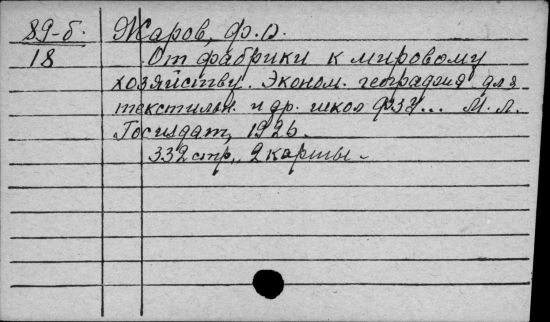 89-б. Жаров, Ф.О.
18 От фабрики к мировому
хозяйству. Эконом. география для
текстильн. и др. школ ФЗУ... М.Л.
Госиздат, 1926.
332 стр., 2 карты.